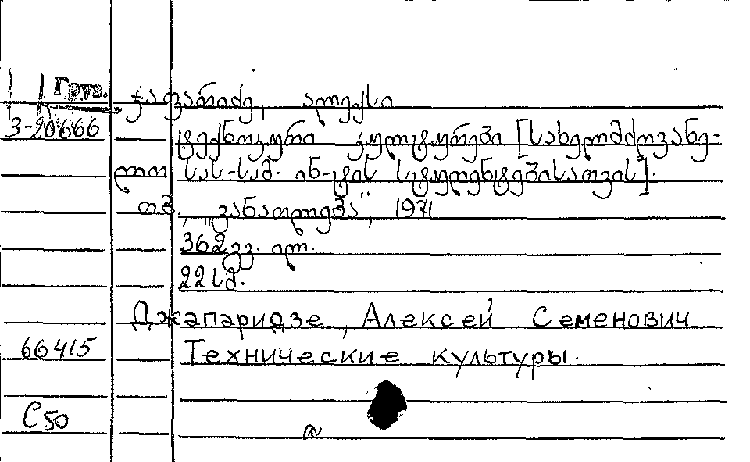 Груз.
ჯაფარიძე, ალექსი
3-20666
ტექნიკური კულტურები [სახელმძღვანე-
ლო სას-სამ. ინ-ტის სტუდენტებისათვის].
თბ., "განათლება", 1971
362 გვ. ილ.
22 სმ.
Джапаридзе, Алексей Семенович
66415 Технические культуры.
С50